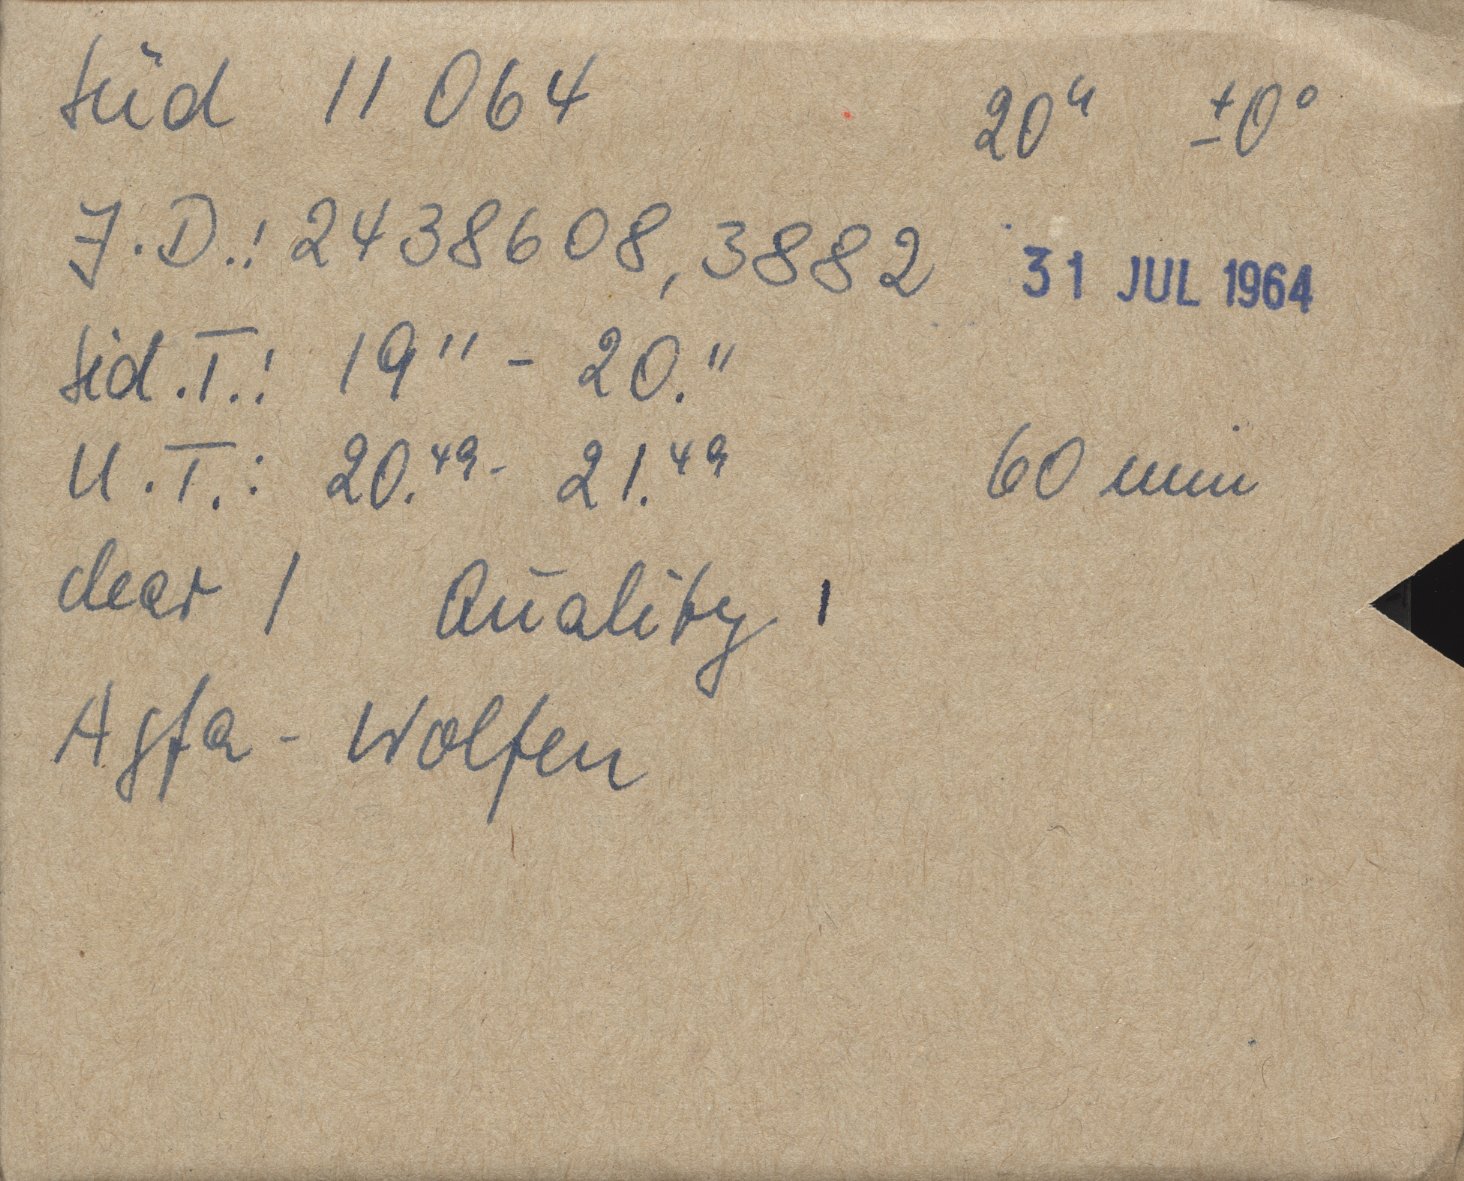 Süd 11 064 20ʰ ±0°
J.D.: 2438608,3882 31 JUL 1964
Sid.T.: 19" - 20."
U.T.: 20.⁴⁹ - 21.⁴⁹ 60 min
clear 1 Quality 1
Agfa - Wolfen